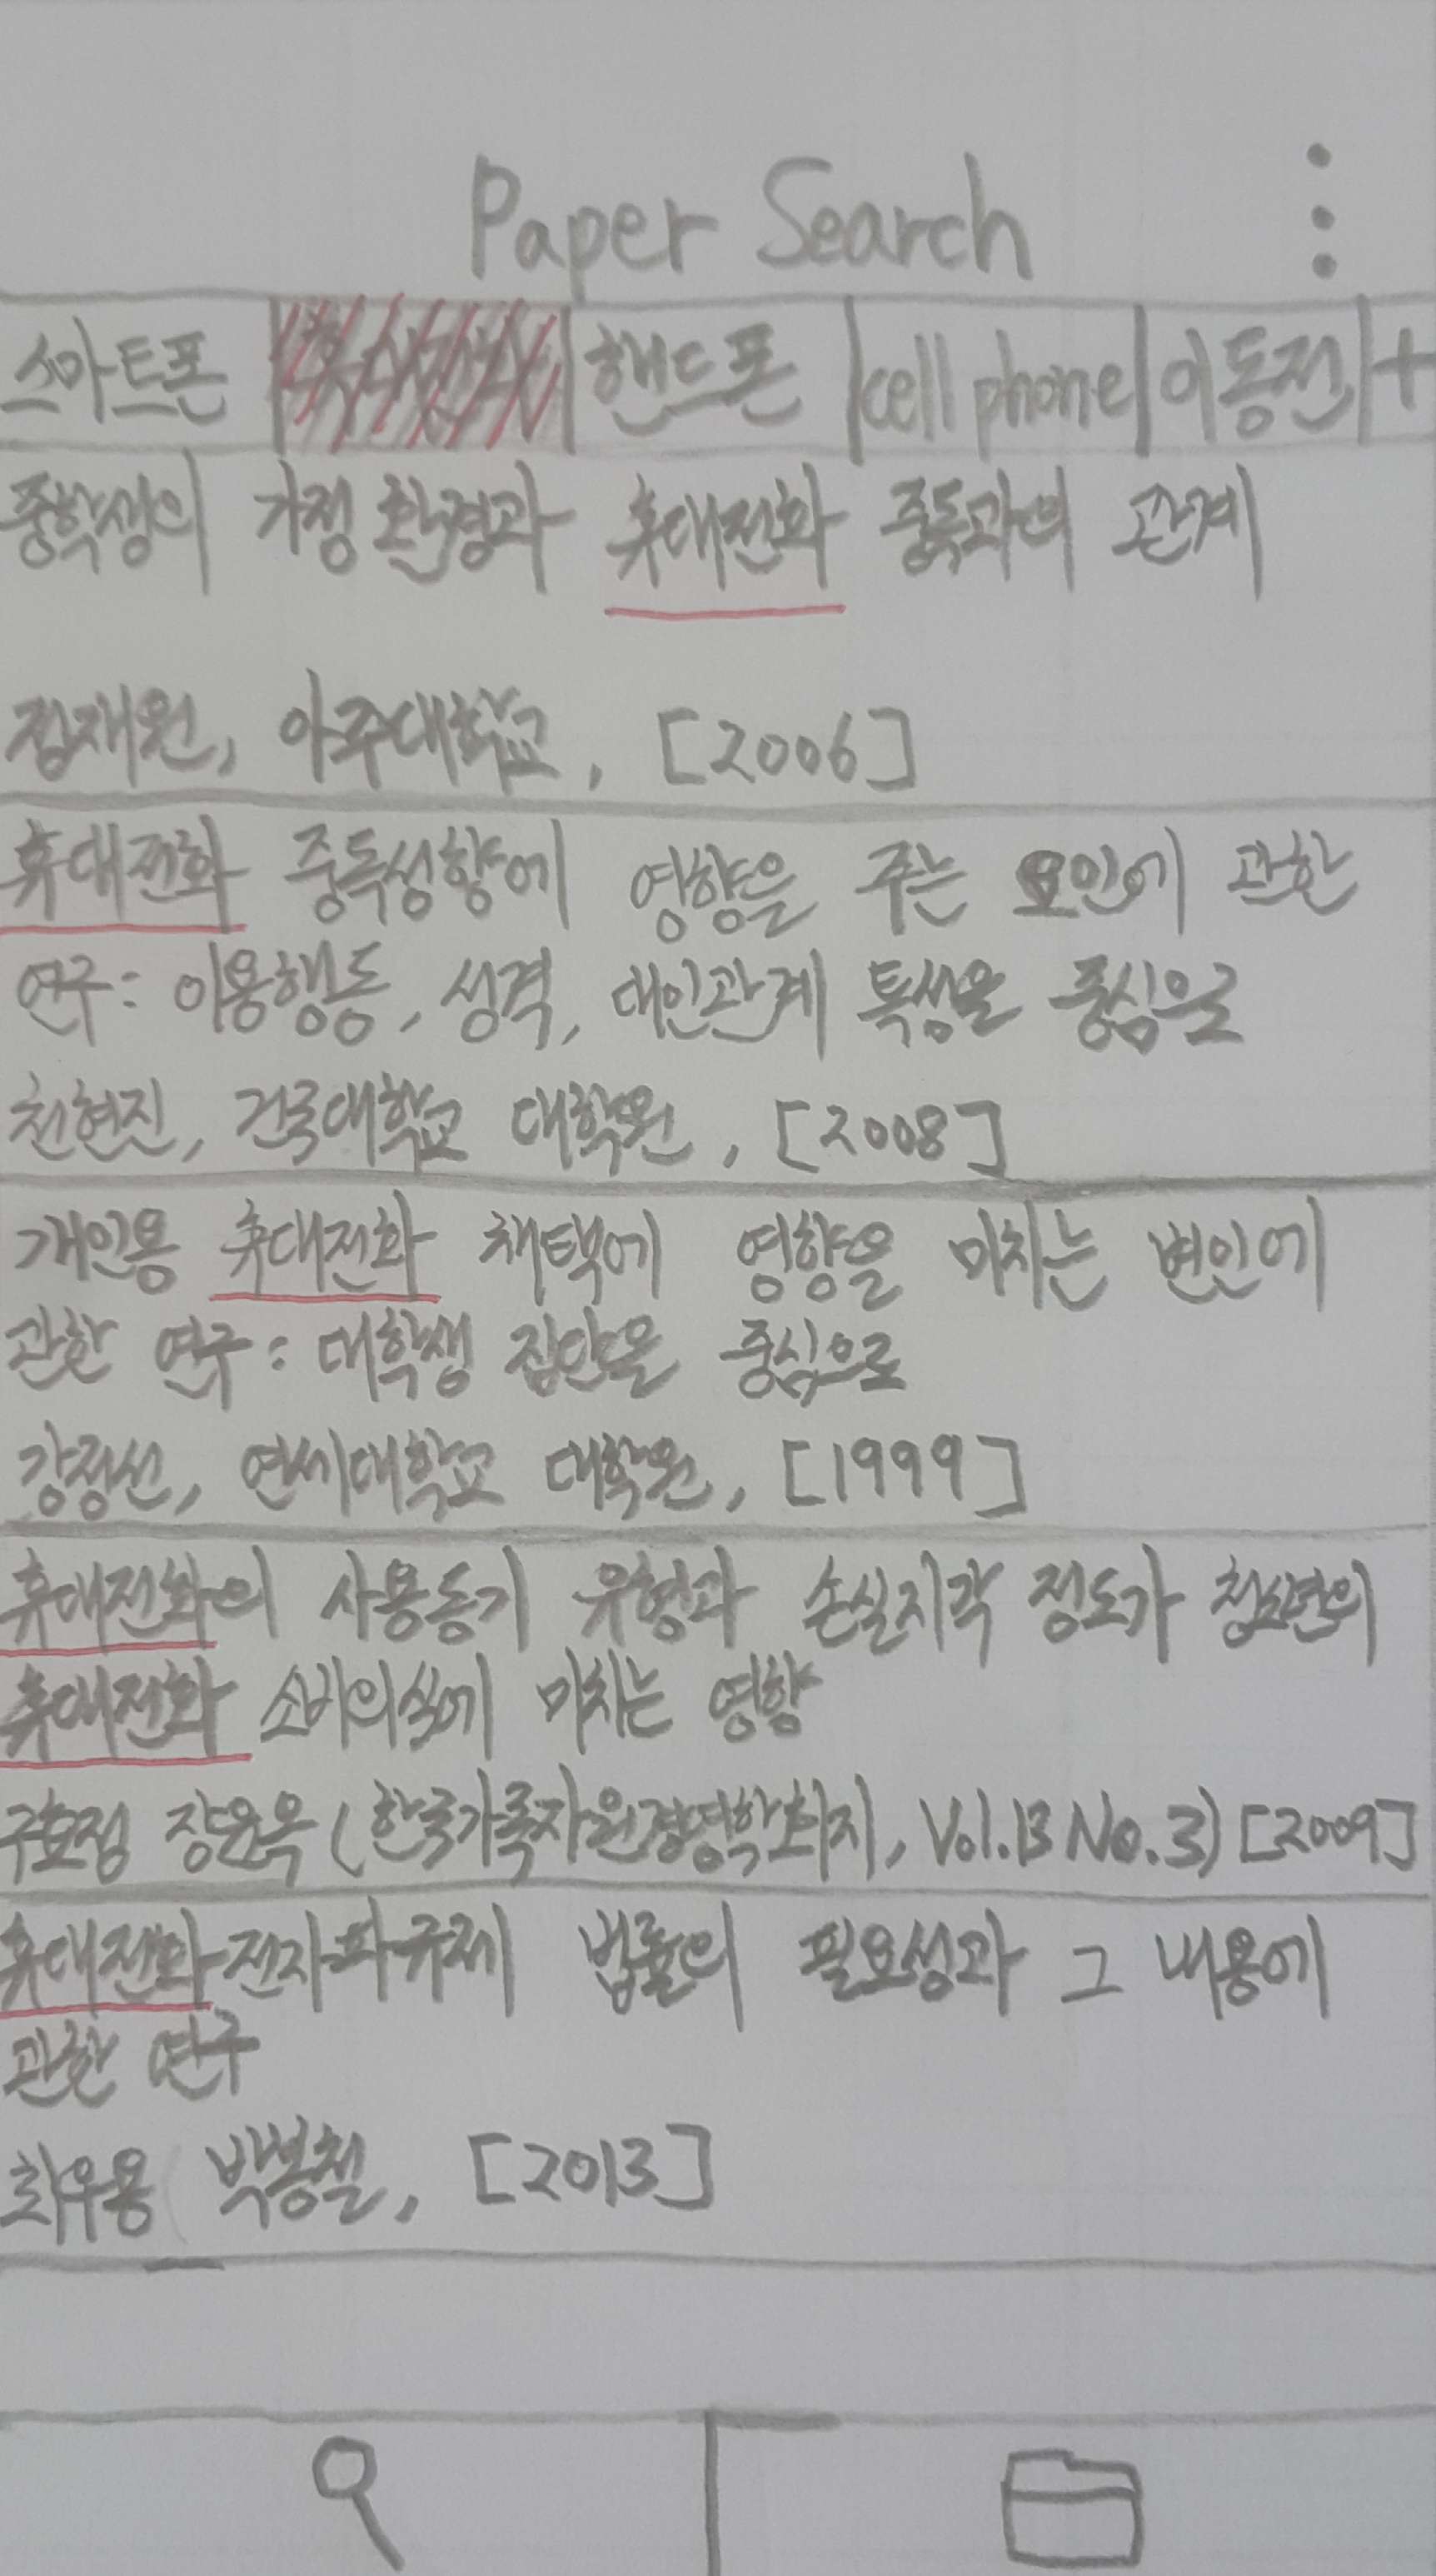 Paper Search
스마트폰 휴대전화 핸드폰 cell phone 이동전 +
중학생의 가정환경과 휴대전화 중독과의 관계
정재원, 아주대학교, [2006]
휴대전화 중독성향에 영향을 주는 요인에 관한
연구: 이용행동, 성격, 대인관계 특성을 중심으로
천현진, 건국대학교 대학원, [2008]
개인용 휴대전화 채택에 영향을 미치는 변인에
관한 연구: 대학생 집단을 중심으로
강정선, 연세대학교 대학원, [1999]
휴대전화의 사용동기 유형과 손실지각 정도가 청소년의
휴대전화 소비의식에 미치는 영향
구효정 장윤옥 (한국가족자원경영학회지, Vol.13 No.3) [2009]
휴대전화전자파규제 법률의 필요성과 그 내용에
관한 연구
최우용 박봉철, [2013]